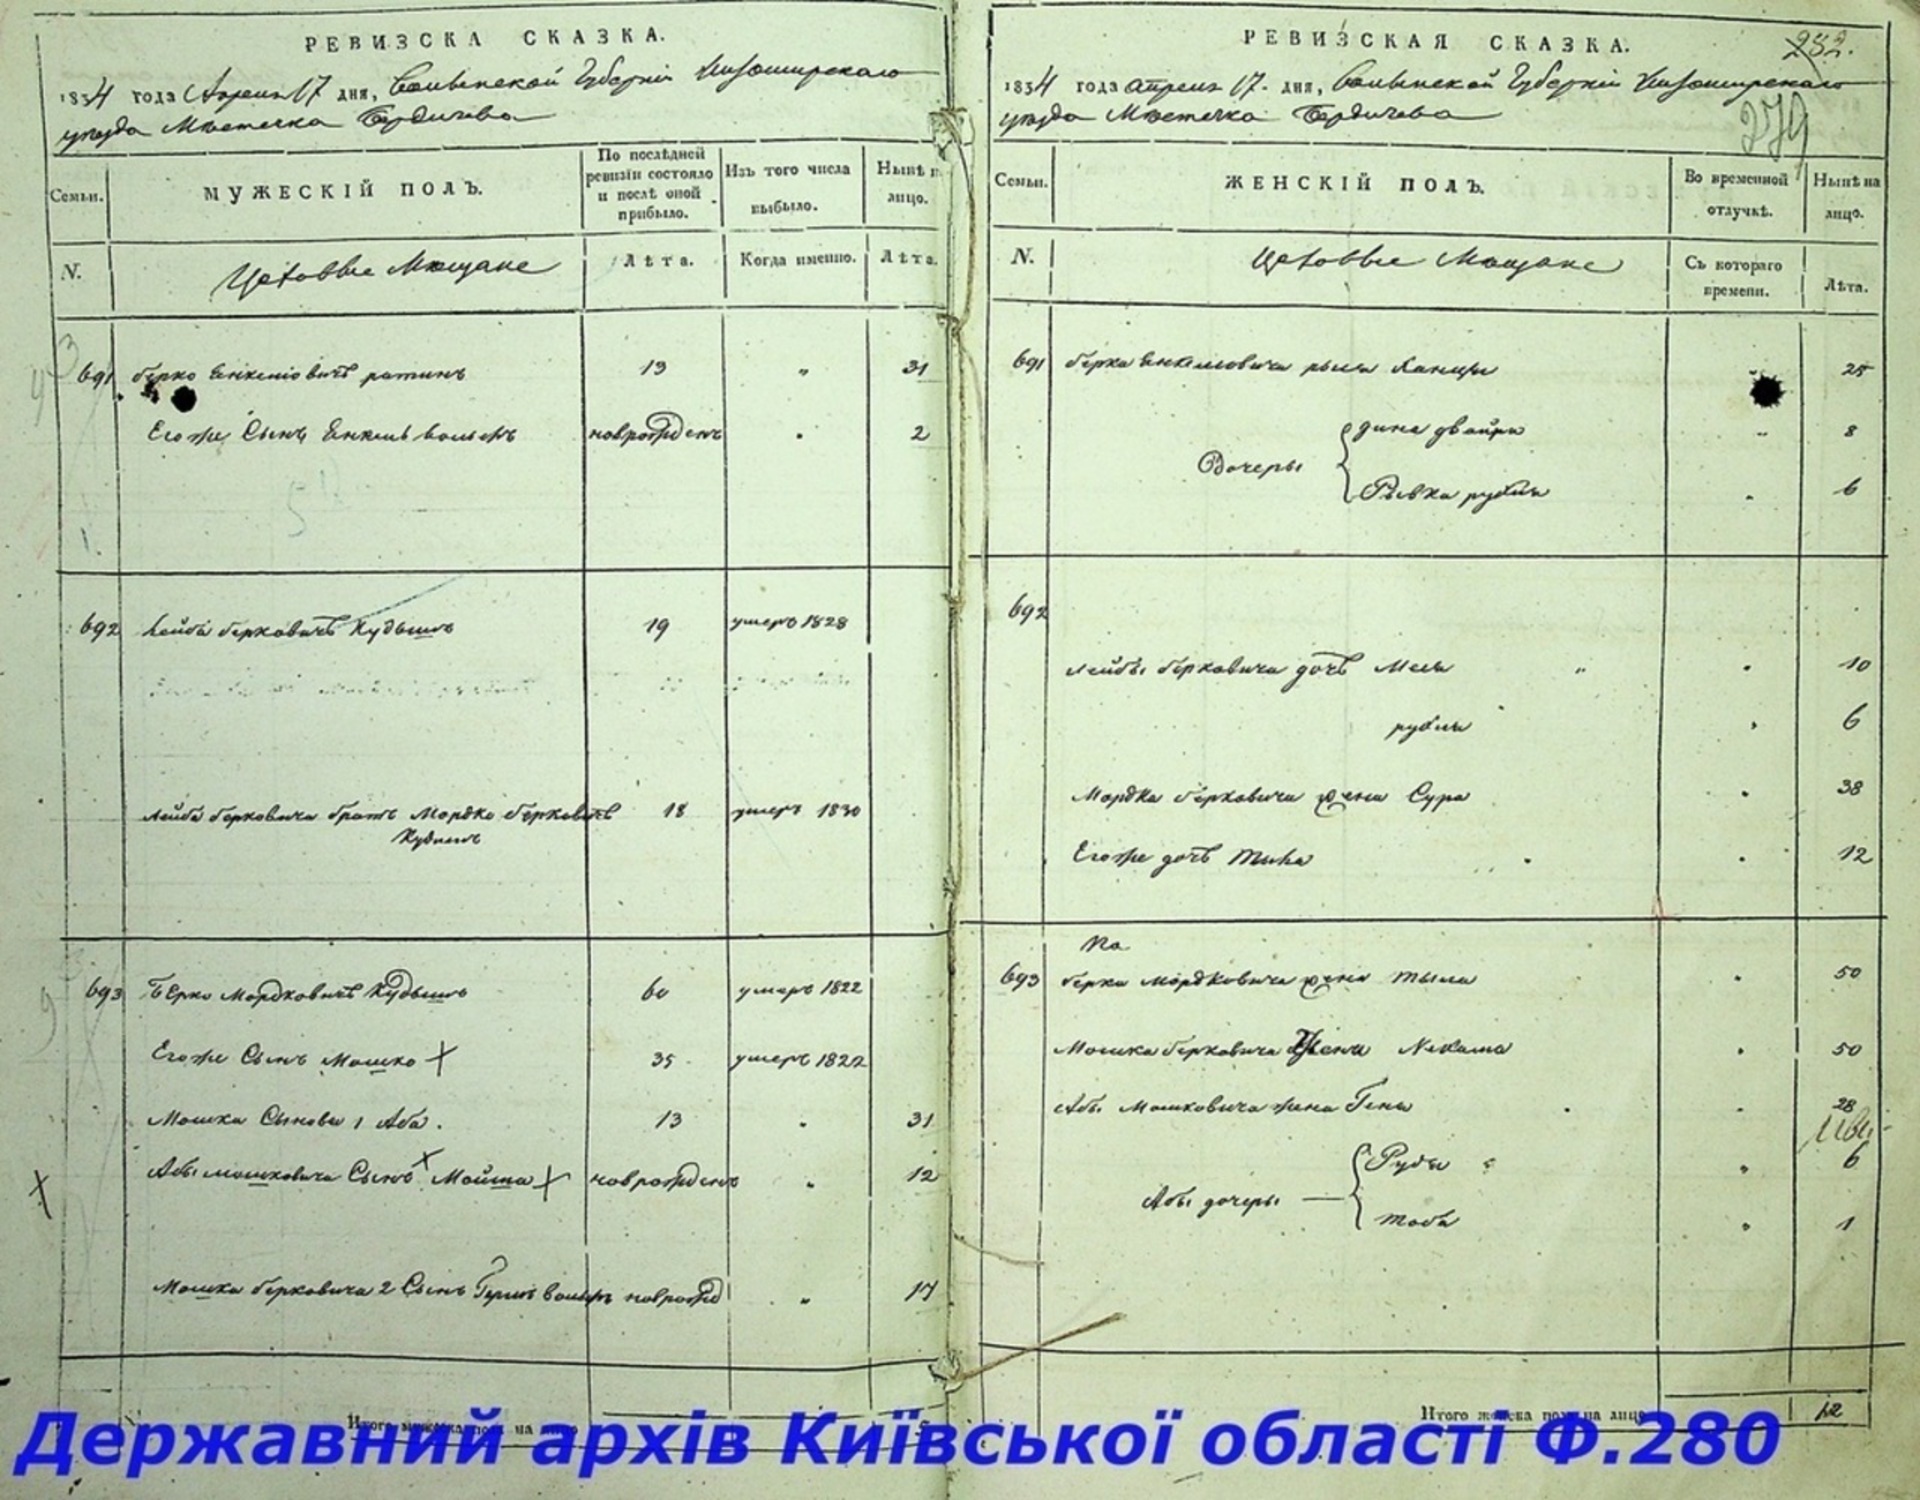 РЕВИЗСКА СКАЗКА.
1834 года Апреля 17 дня, Волынской Губернiи Житомирскаго
уезда Местечка Бердичева
Семьи.
МУЖЕСКIЙ ПОЛЪ.
По послѣдней ревизiи состояло и послѣ оной прибыло.
Изъ того числа выбыло.
Нынѣ на лицо.
N.
Цеховые Мещане
Лѣта.
Когда именно.
Лѣта.
691 Берко Енкелiовичъ ратинъ 13 " 31
Его же Сынъ Енкель вольъ новорожденъ " 2
692 Лейба берковичъ Кудышъ 19 умеръ 1828
Лейба берковича братъ Мордко берковичъ 18 умеръ 1830
Кудышъ
693 Берко Мордковичъ Кудышъ 60 умеръ 1822
Его же Сынъ Мошко 35 умеръ 1822
Мошка Сыновья 1 Аба. 13 " 31
Абы мошковича Сынъ новорожденъ " 12
Мошка берковича 2 Сынъ Гершъ вольъ новорожд " 17
Итого мужеска пола на лицо 5
РЕВИЗСКАЯ СКАЗКА.
232.
279
1834 года апреля 17. дня, Волынской Губернiи Житомирскаго
уезда Местечка Бердичева
Семьи.
ЖЕНСКIЙ ПОЛЪ.
Во временной отлучкѣ.
Нынѣ на лицо.
N.
Цеховые Мещане
Съ котораго времени.
Лѣта.
691 берка Енкелiовича жена Ханцы " 25
Дочеры
дина двойра " 8
Рывка рубля " 6
692
Лейбы берковича дочь Меся " 10
рубля " 6
Мордка берковича жена Сура " 38
Его же дочъ " 12
693 берка Мордковича жена тыла " 50
Мошка берковича жена Нехама " 50
Абы Мошковича жена Геня " 28
Абы дочеры
Руды " 6
тоба " 1
Итого женска пола на лицо 12
Державний архів Київської області Ф.280